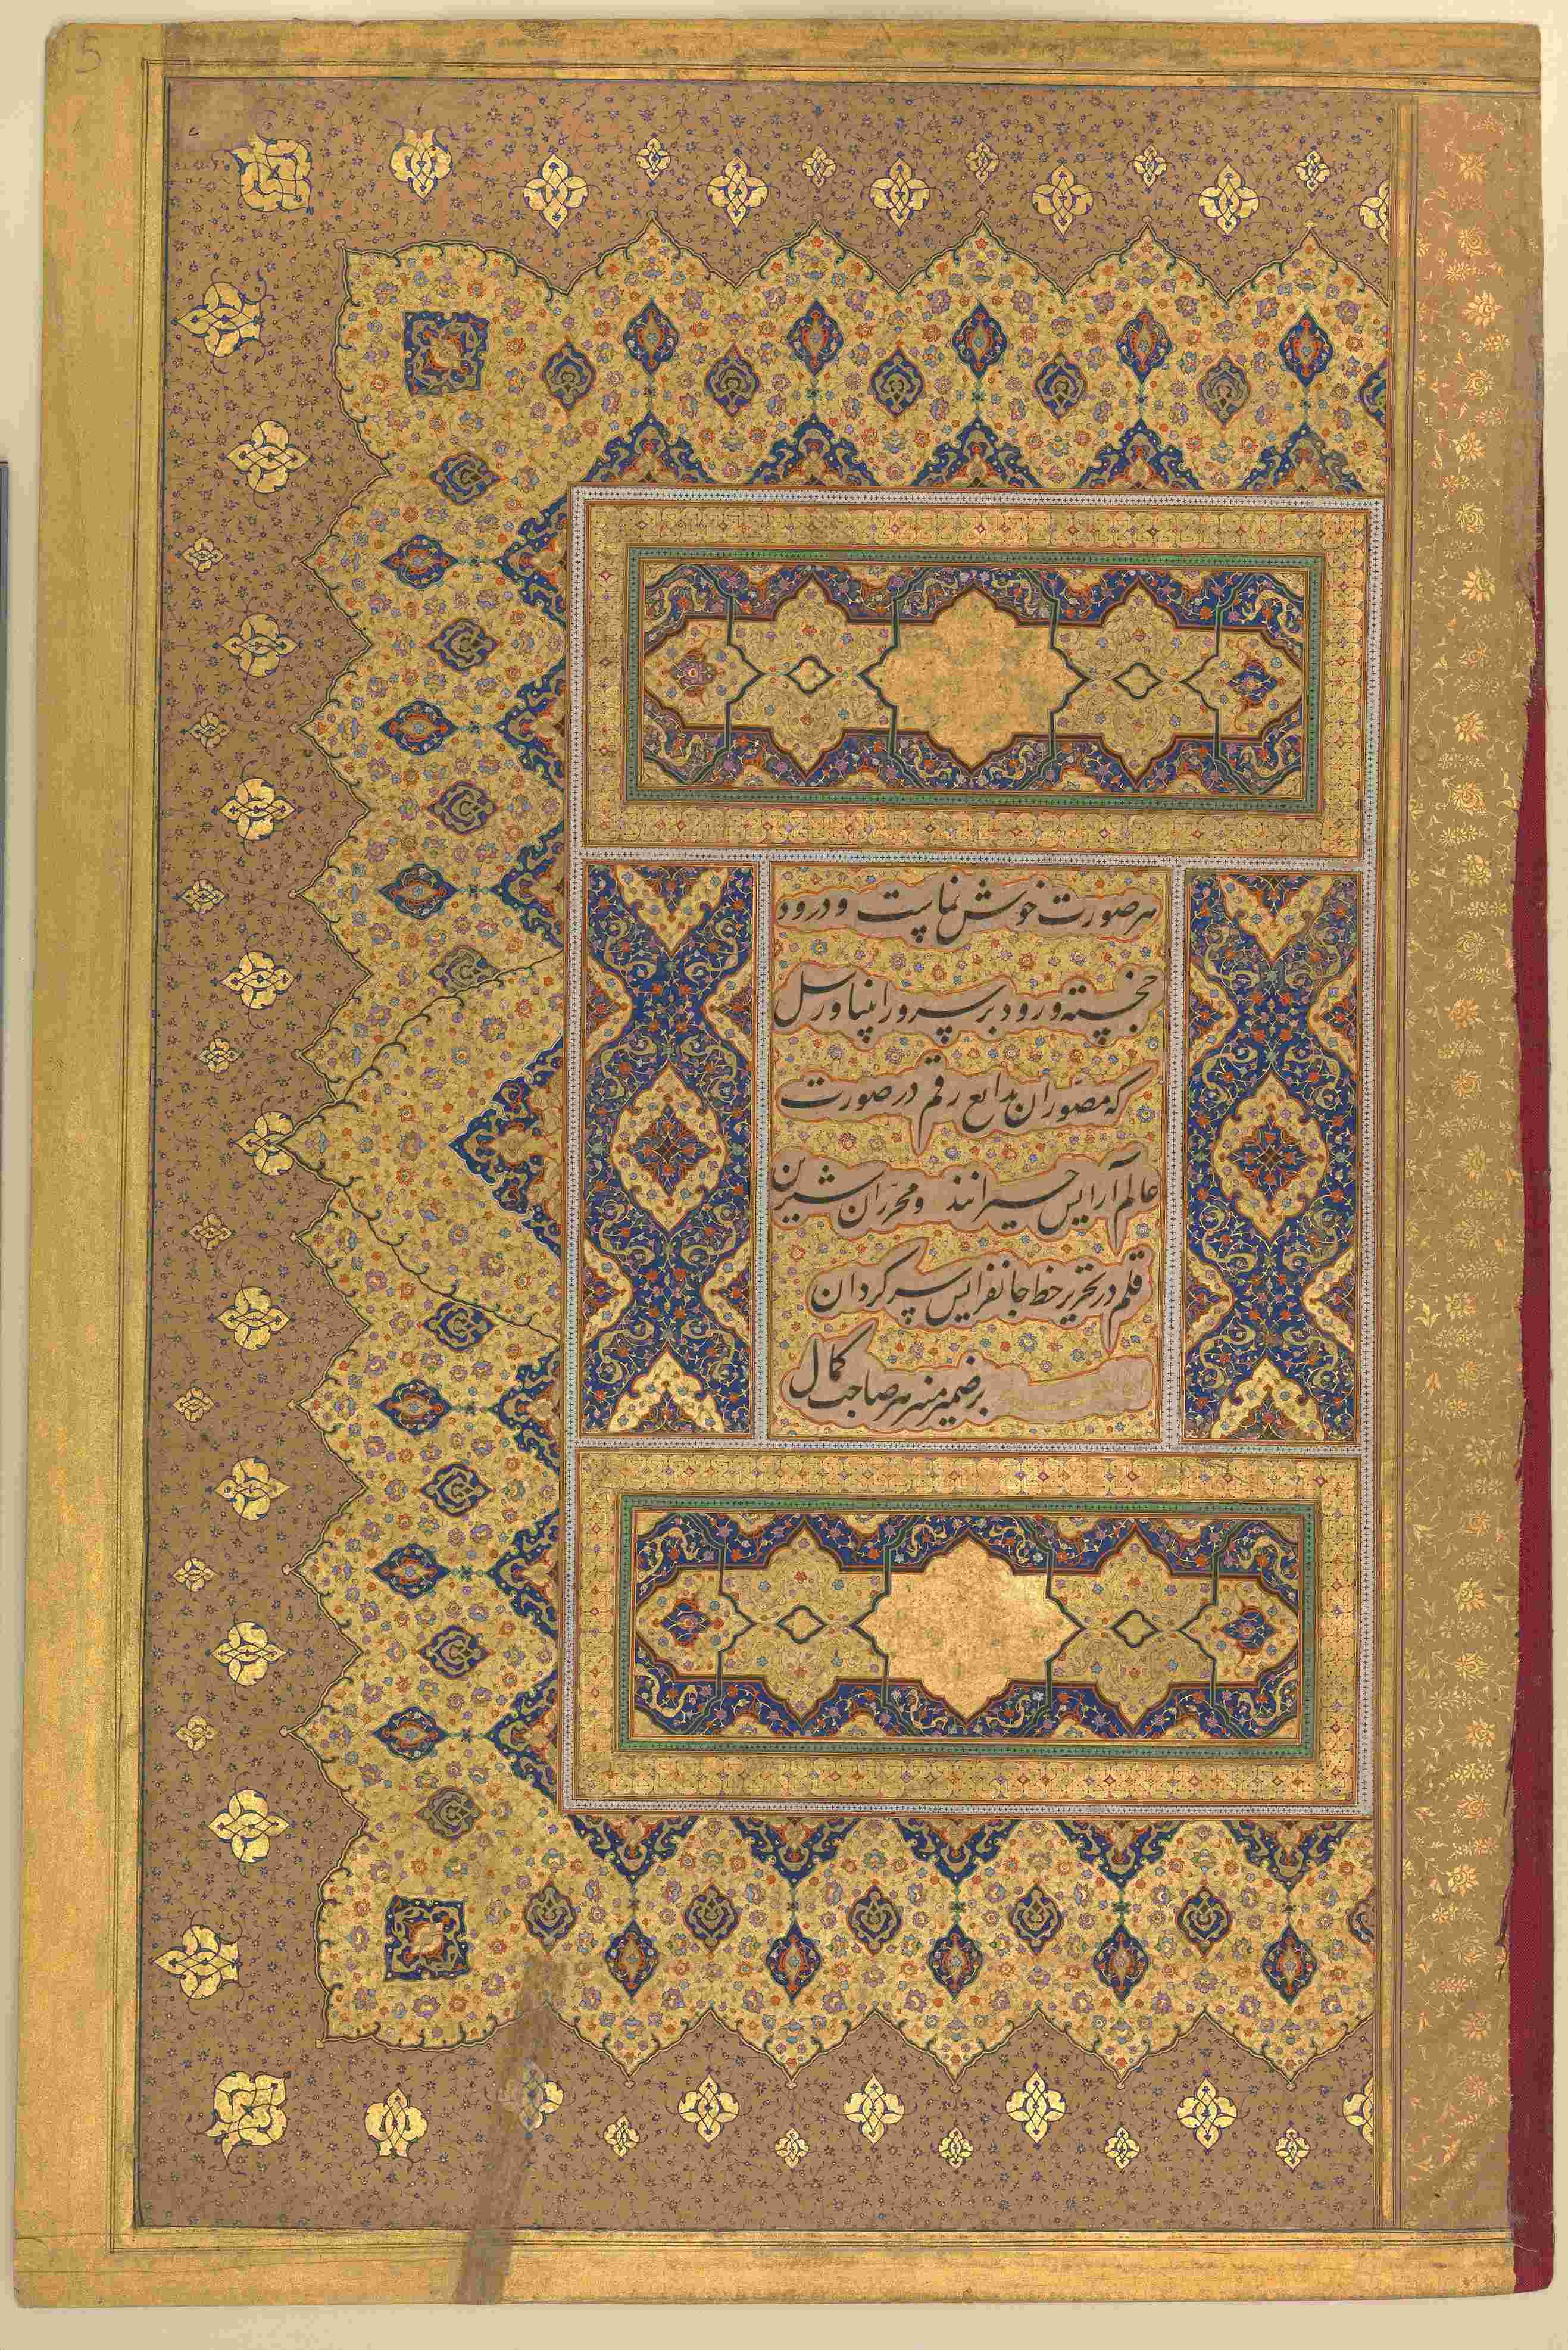 5
هر صورت خوش نماست و درود
خجسته ورود بر سرور انبیا و رسل
که مصوّران بدایع رقم در صورت
عالم آرایش حیرانند و محرّران شیرین
قلم در تحریر خط جانفزایش سرگردان
بر ضمیر منیر هر صاحب کمال